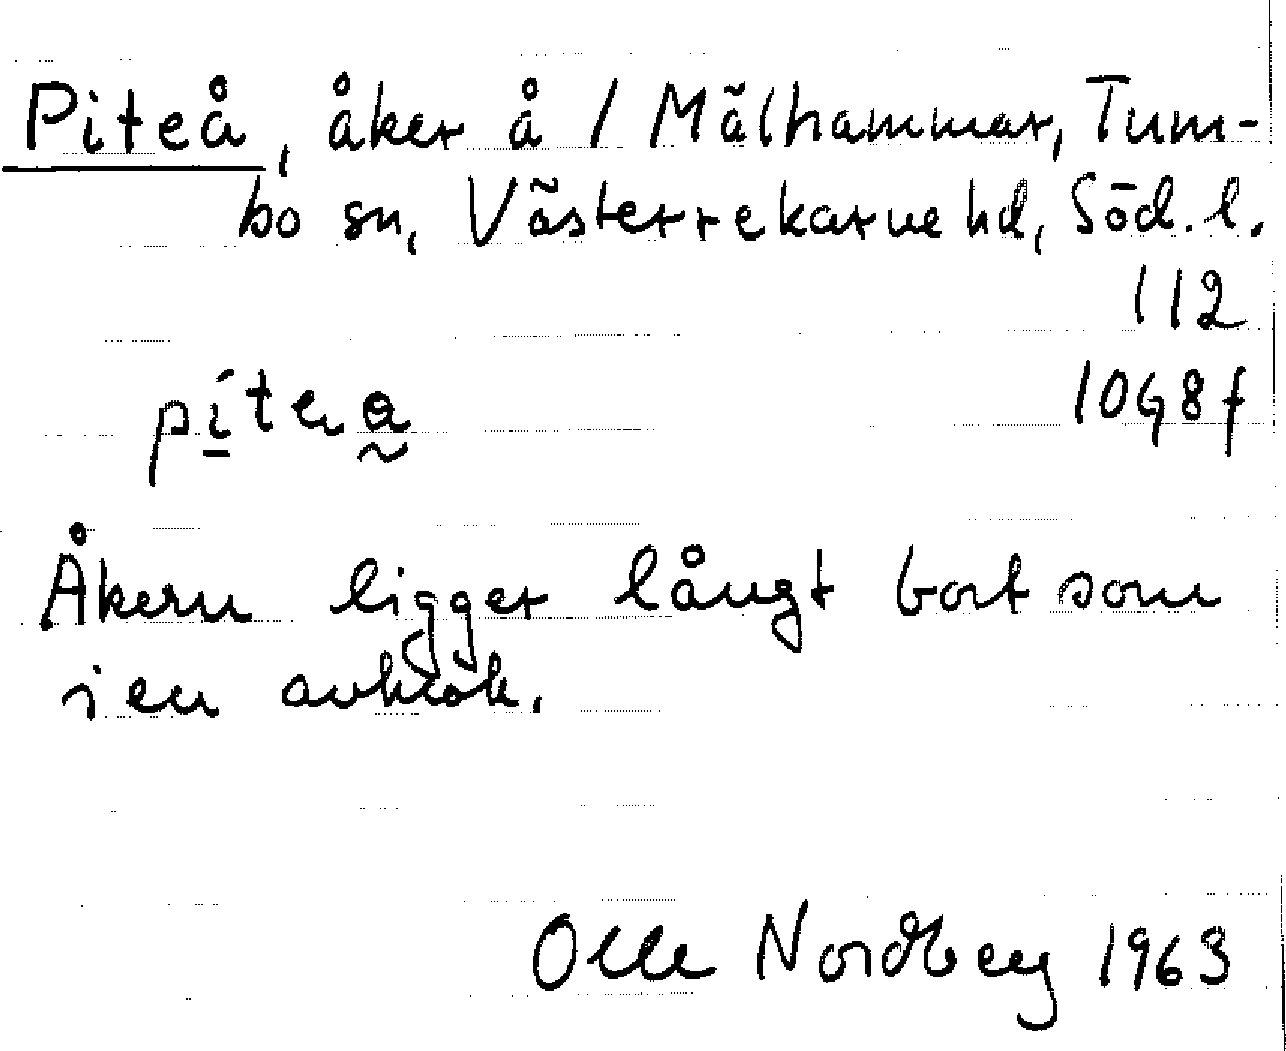 Piteå, åker å / Mälhammar, Tum-
bo sn, Västerrekarne hd, Söd. l.
112
10G8f
Åkern ligger långt bort som
i en avkrok.
Olle Nordberg 1963